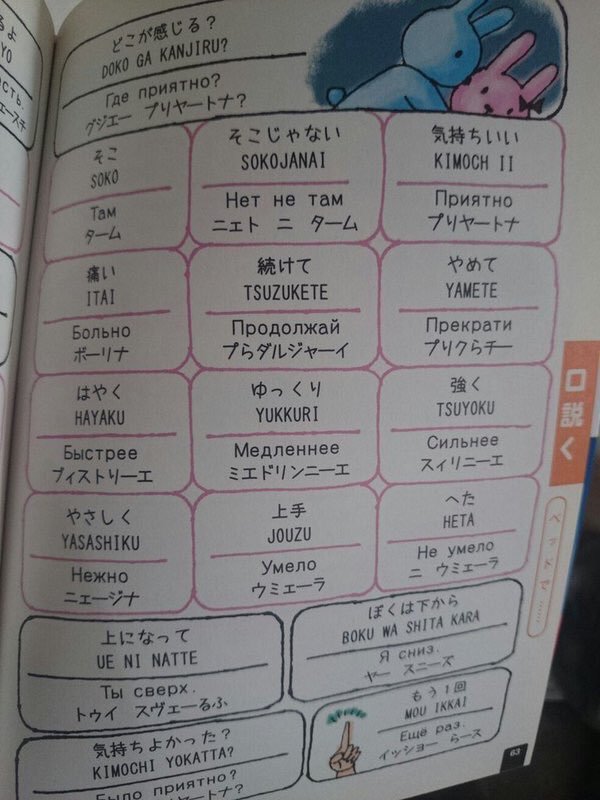 どこが感じる?
DOKO GA KANJIRU?
Где приятно?
グジエー プリヤートナ?
そこ
SOKO
Там
ターム
そこじゃない
SOKOJANAI
Нет не там
ニェト ニ ターム
気持ちいい
KIMOCH II
Приятно
プリヤートナ
痛い
ITAI
Больно
ボーリナ
続けて
TSUZUKETE
Продолжай
プらダルジャーイ
やめて
YAMETE
Прекрати
プリクらチー
はやく
HAYAKU
Быстрее
ブィストリーエ
ゆっくり
YUKKURI
Медленнее
ミエドリンニーエ
強く
TSUYOKU
Сильнее
スィリニーエ
やさしく
YASASHIKU
Нежно
ニェージナ
上手
JOUZU
Умело
ウミェーラ
へた
HETA
Не умело
ニ ウミェーラ
上になって
UE NI NATTE
Ты сверх.
トゥイ スヴェーるふ
ぼくは下から
BOKU WA SHITA KARA
Я сниз.
ヤー スニーズ
もう1回
MOU IKKAI
Ещё раз.
イッショー らース
気持ちよかった?
KIMOCHI YOKATTA?
Было приятно?
口説く
63